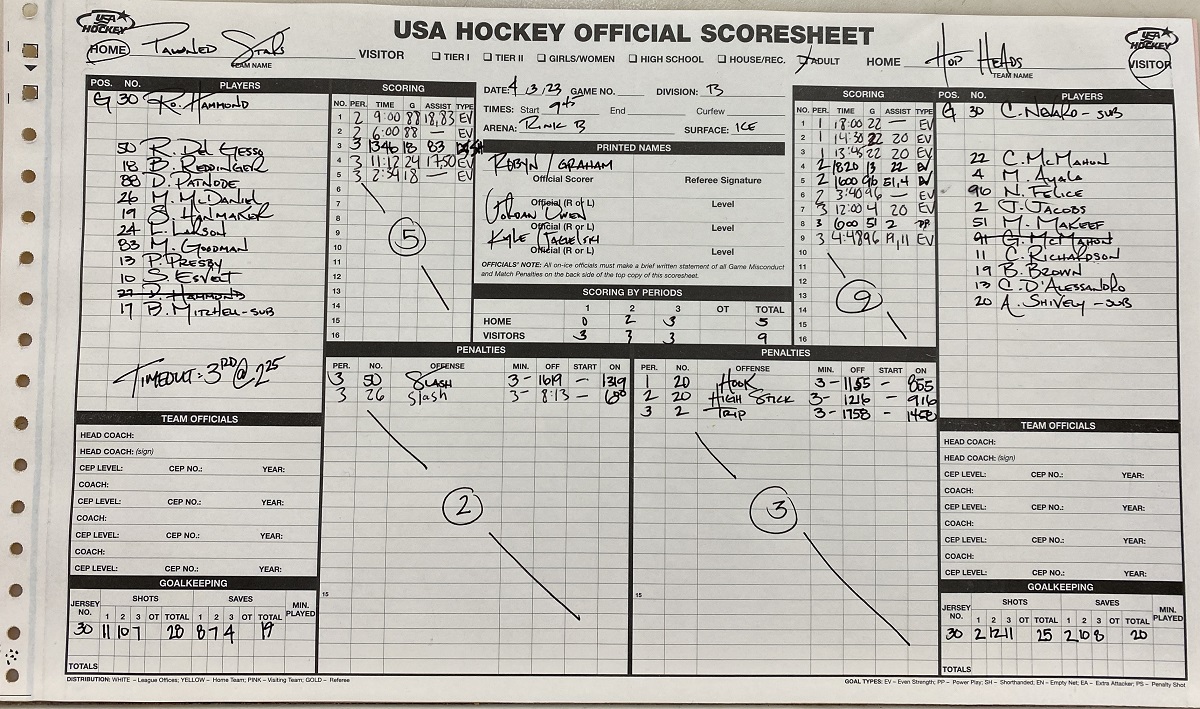 USA HOCKEY
USA HOCKEY OFFICIAL SCORESHEET
USA HOCKEY
HOME Pawned Stars VISITOR ☐ TIER I ☐ TIER II ☐ GIRLS/WOMEN ☐ HIGH SCHOOL ☐ HOUSE/REC. ☑ ADULT HOME Hop Heads VISITOR
TEAM NAME TEAM NAME
POS. NO. PLAYERS
G 30 Ro. Hammond
50 R. Del Gesso
18 B. Reddinger
88 D. Patnode
26 M. McDaniel
19 S. Hanmaker
24 E. Larson
83 M. Goodman
13 P. Presby
10 S. Esvelt
17 B. Mitchell-sub
Timeout: 3RD @ 2:25
SCORING
NO. PER. TIME G ASSIST TYPE
1 2 9:00 88 18,83 EV
2 2 6:00 88 — EV
3 3 1346 18 83
4 3 11:12 24 17,50 EV
5 3 2:34 18 — EV
6
7
8
9
10
11
12
13
14
15
16
5
DATE: 4/3/23 GAME NO. DIVISION: B
TIMES: Start 9:45 End Curfew
ARENA: Rink B SURFACE: ICE
PRINTED NAMES
Robyn/Graham
Official Scorer Referee Signature
Jordan Owen
Official (R or L) Level
Kyle
Official (R or L) Level
Official (R or L) Level
OFFICIALS' NOTE: All on-ice officials must make a brief written statement of all Game Misconduct
and Match Penalties on the back side of the top copy of this scoresheet.
SCORING BY PERIODS
1 2 3 OT TOTAL
HOME 0 2 3 5
VISITORS 3 3 3 9
SCORING
NO. PER. TIME G ASSIST TYPE
1 1 18:00 22 — EV
2 1 14:30 22 20 EV
3 1 13:45 22 20 EV
4 2 1820 13 22 EV
5 2 1600 96 51,4 EV
6 2 3:40 96 — EV
7 3 12:00 4 20 EV
8 3 600 51 2 PP
9 3 4:48 96 9,11 EV
10
11
12
13
14
15
16
9
POS. NO. PLAYERS
G 30 C. Nevaro-sub
22 C. McMahon
4 M. Ayala
96 N. Felice
2 J. Jacobs
51 M. Makeef
91 G. McMahon
11 C. Richardson
19 B. Brown
13 C. D'Alessandro
20 A. Shively-sub
PENALTIES
PER. NO. OFFENSE MIN. OFF START ON
3 50 Slash 3- 1619 — 1319
3 26 Slash 3- 8:13 —
2
15
PENALTIES
PER. NO. OFFENSE MIN. OFF START ON
1 20 Hook 3- 1155 — 855
2 20 High Stick 3- 1216 — 916
3 2 Trip 3- 1758 — 1458
3
15
TEAM OFFICIALS
HEAD COACH:
HEAD COACH: (sign)
CEP LEVEL: CEP NO.: YEAR:
COACH:
CEP LEVEL: CEP NO.: YEAR:
COACH:
CEP LEVEL: CEP NO.: YEAR:
COACH:
CEP LEVEL: CEP NO.: YEAR:
GOALKEEPING
JERSEY NO. SHOTS SAVES MIN. PLAYED
1 2 3 OT TOTAL 1 2 3 OT TOTAL
30 11 10 7 28 8 7 4 19
TOTALS
TEAM OFFICIALS
HEAD COACH:
HEAD COACH: (sign)
CEP LEVEL: CEP NO.: YEAR:
COACH:
CEP LEVEL: CEP NO.: YEAR:
COACH:
CEP LEVEL: CEP NO.: YEAR:
COACH:
CEP LEVEL: CEP NO.: YEAR:
GOALKEEPING
JERSEY NO. SHOTS SAVES MIN. PLAYED
1 2 3 OT TOTAL 1 2 3 OT TOTAL
30 2 12 11 25 2 10 8 20
TOTALS
DISTRIBUTION: WHITE – League Offices; YELLOW – Home Team; PINK – Visiting Team; GOLD – Referee
GOAL TYPES: EV – Even Strength; PP – Power Play; SH – Shorthanded; EN – Empty Net; EA – Extra Attacker; PS – Penalty Shot